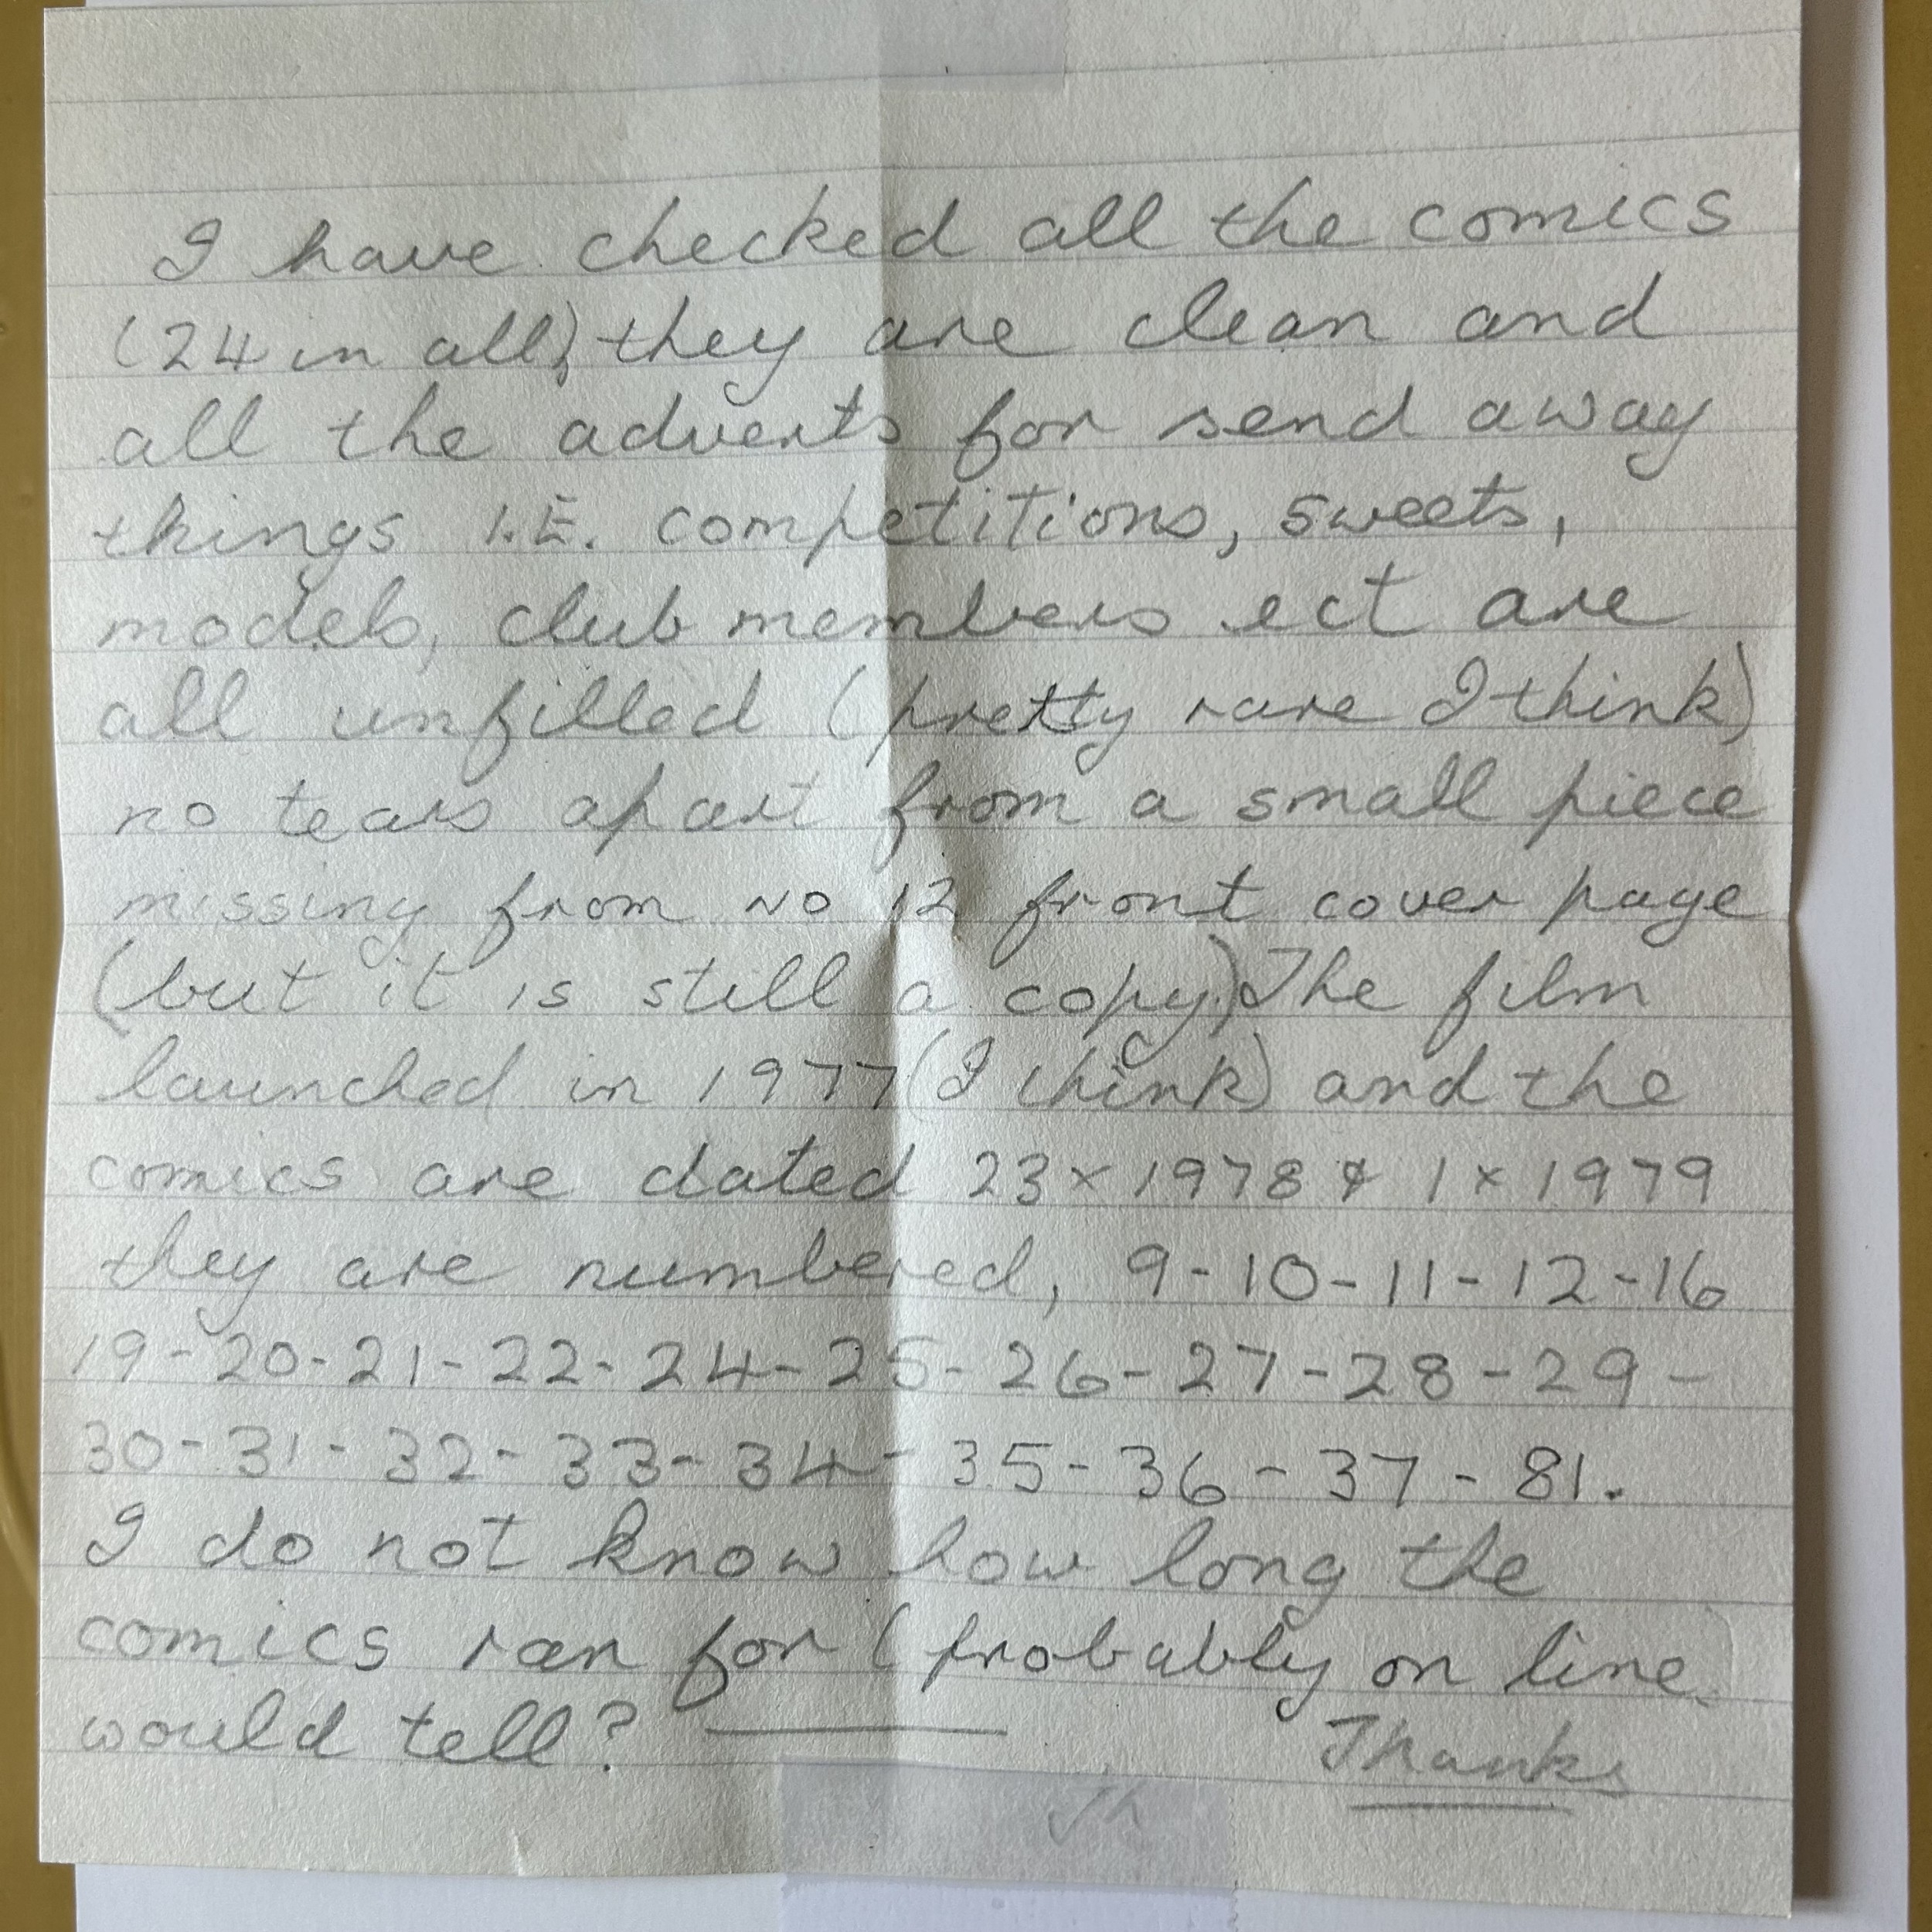 I have checked all the comics
(24 in all) they are clean and
all the adverts for send away
things I.E. competitions, sweets,
models, club members ect are
all unfilled (pretty rare I think)
no tears apart from a small piece
missing from No 12 front cover page
(but it is still a copy) The film
launched in 1977 (I think) and the
comics are dated 23 x 1978 & 1 x 1979
they are numbered, 9-10-11-12-16
19-20-21-22-24-25-26-27-28-29-
30-31-32-33-34-35-36-37-81.
I do not know how long the
comics ran for (probably on line
would tell?
Thanks